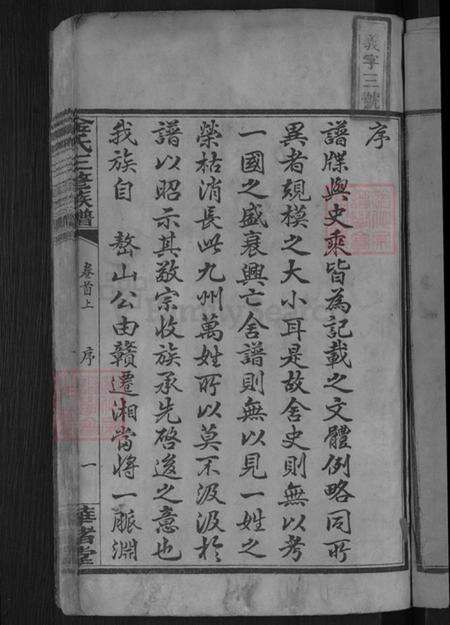 義字三號
序
譜牒與史乘皆為記載之文體例略同所
異者規模之大小耳是故舍史則無以考
一國之盛衰興亡舍譜則無以見一姓之
榮枯消長此九州萬姓所以莫不汲汲於
譜以昭示其敬宗收族承先啓後之意也
我族自 嶅山公由贛遷湘嘗將一脈淵
氏三修族譜
卷首上
序
一